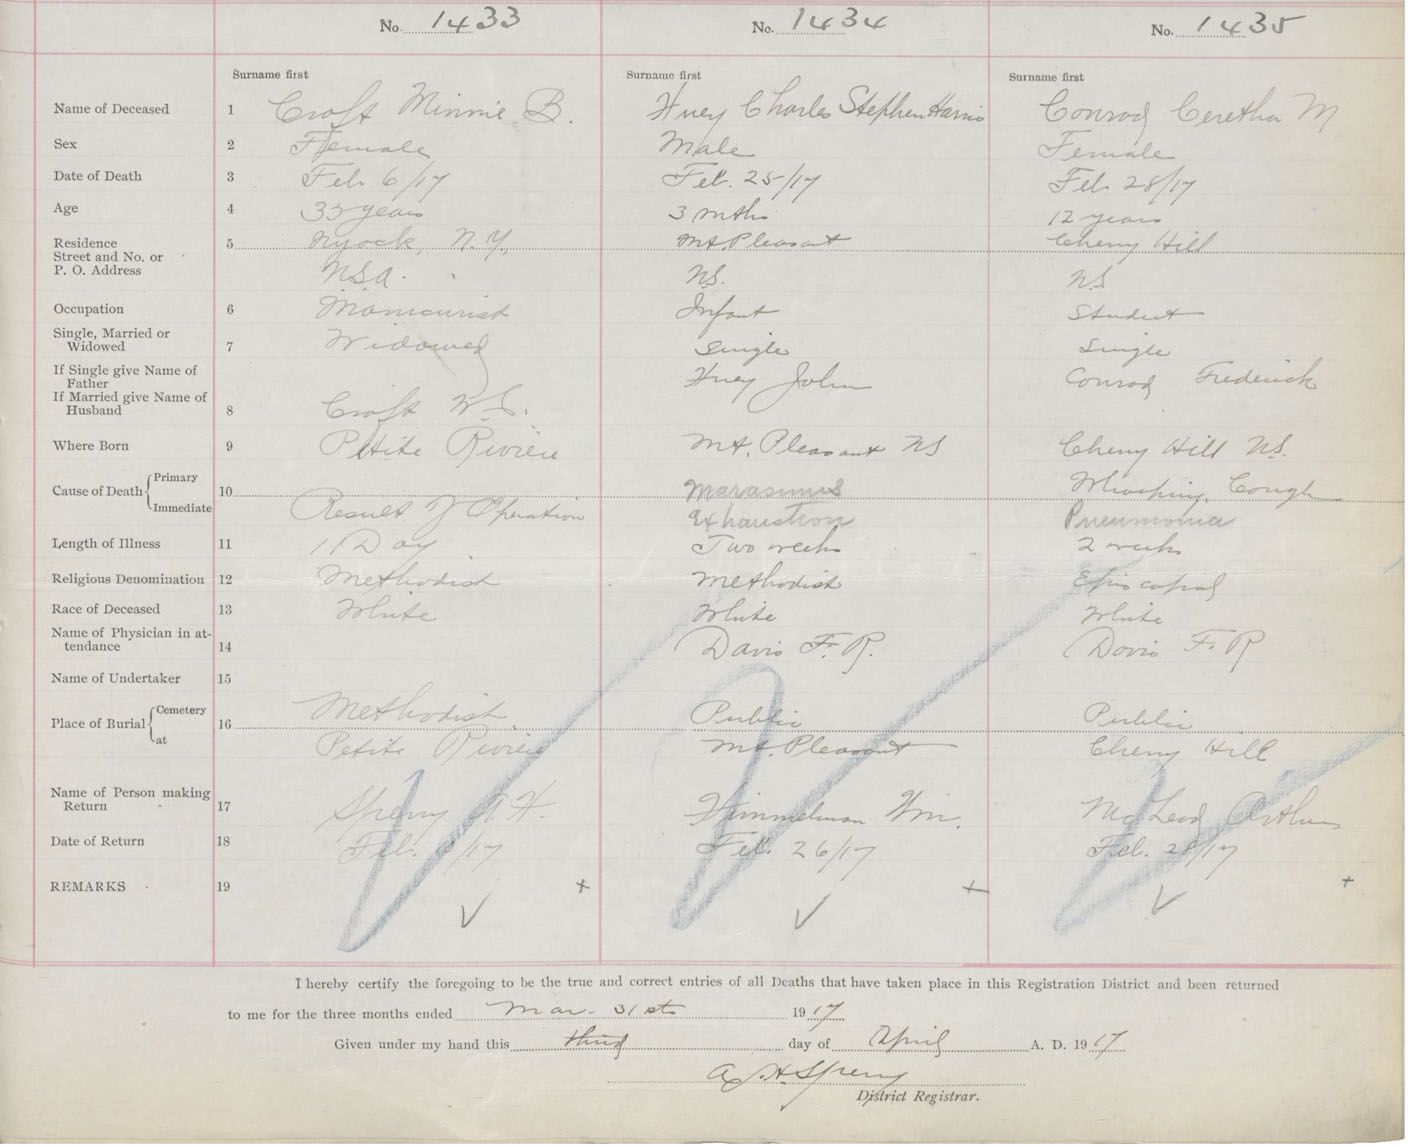 No. 1433 No. 1434 No. 1435
Surname first Surname first Surname first
Name of Deceased 1 Croft Minnie B. Huey Charles Stephen Harris Conrad Ceretha M
Sex 2 Female Male Female
Date of Death 3 Feb. 6/17 Feb. 25/17 Feb 28/17
Age 4 35 years 3 mths 12 years
Residence 5 Nyack, N.Y., Mt. Pleasant Cherry Hill
Street and No. or
P. O. Address USA. NS. NS
Occupation 6 Manicurist Infant Student
Single, Married or
Widowed 7 Widowed Single Single
If Single give Name of
Father Huey John Conrad Frederick
If Married give Name of
Husband 8 Croft W.S.
Where Born 9 Petite Riviere Mt. Pleasant NS Cherry Hill NS.
Cause of Death Primary 10 Marasmus Whooping Cough
Immediate Result of Operation Exhaustion Pneumonia
Length of Illness 11 1 Day Two weeks 2 weeks
Religious Denomination 12 Methodist Methodist Episcopal
Race of Deceased 13 White White White
Name of Physician in at-
tendance 14 Davis F. R. Davis F. R
Name of Undertaker 15
Place of Burial Cemetery 16 Methodist Public Public
at Petite Riviere Mt. Pleasant Cherry Hill
Name of Person making
Return 17 Sperry A. H. Himmelman Wm. McLeod Arthur
Date of Return 18 Feb. /17 Feb. 26/17 Feb. 28/17
REMARKS 19
I hereby certify the foregoing to be the true and correct entries of all Deaths that have taken place in this Registration District and been returned
to me for the three months ended Mar. 31st 1917
Given under my hand this third day of April A. D. 1917
A. H. Sperry
District Registrar.